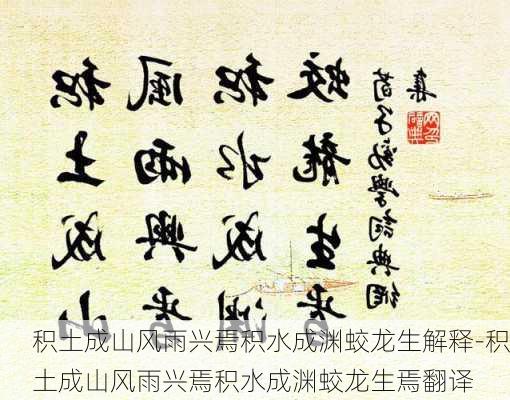 积土成山
風雨興焉
积水成渊
蛟龍生焉
荀子勸學詞典網
集
积土成山风雨兴焉积水成渊蛟龙生解释-积
土成山风雨兴焉积水成渊蛟龙生焉翻译